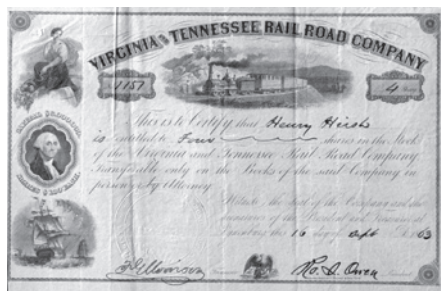 VIRGINIA AND TENNESSEE RAIL ROAD COMPANY
1157
4
This is to Certify that Henry Hirsh
is entitled to Four shares in the Stock
of the Virginia and Tennessee Rail Road Company
Transferable only on the Books of the said Company in
person or by Attorney
Witness the Seal of the Company and the
signatures of the President and Treasurer at
Lynchburg this 16 day of Sept 1863